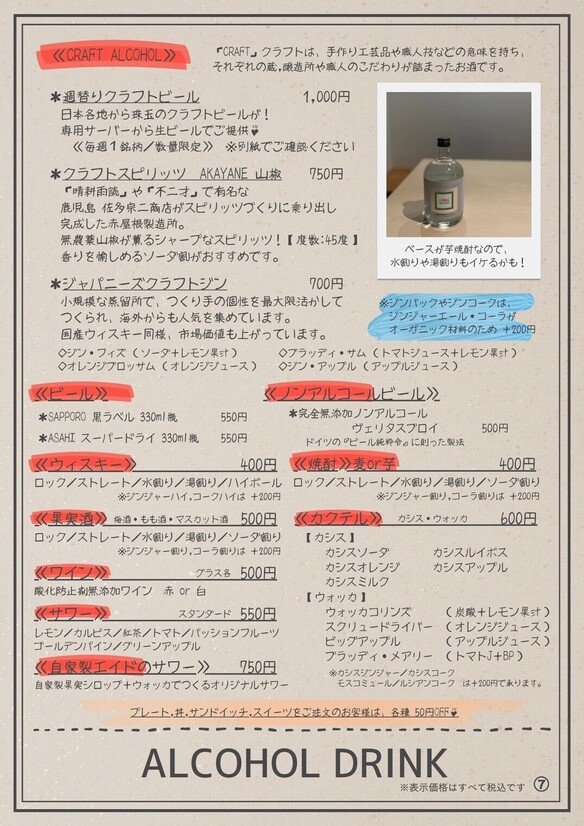 ≪CRAFT ALCOHOL≫
『CRAFT』クラフトは、手作り工芸品や職人技などの意味を持ち、
それぞれの蔵、醸造所や職人のこだわりが詰まったお酒です。
＊週替りクラフトビール 1,000円
日本各地から珠玉のクラフトビールが！
専用サーバーから生ビールでご提供♥
≪毎週1銘柄／数量限定≫ ※別紙でご確認ください
＊クラフトスピリッツ AKAYANE 山椒 750円
『晴耕雨読』や『不二才』で有名な
鹿児島 佐多宗二商店がスピリッツづくりに乗り出し
完成した赤屋根製造所。
無農薬山椒が薫るシャープなスピリッツ！【度数:45度】
香りを愉しめるソーダ割がおすすめです。
ベースが芋焼酎なので、
水割りや湯割りもイケるかも！
＊ジャパニーズクラフトジン 700円
小規模な蒸留所で、つくり手の個性を最大限活かして
つくられ、海外からも人気を集めています。
国産ウィスキー同様、市場価値も上がっています。
※ジンバックやジンコークは、
ジンジャーエール・コーラが
オーガニック材料のため +200円
◇ジン・フィズ（ソーダ+レモン果汁） ◇ブラッディ・サム（トマトジュース+レモン果汁）
◇オレンジブロッサム（オレンジジュース） ◇ジン・アップル（アップルジュース）
≪ビール≫
＊SAPPORO 黒ラベル 330ml瓶 550円
＊ASAHI スーパードライ 330ml瓶 550円
≪ノンアルコールビール≫
＊完全無添加ノンアルコール
ヴェリタスブロイ 500円
ドイツの『ビール純粋令』に則った製法
≪ウィスキー≫ 400円
ロック／ストレート／水割り／湯割り／ハイボール
※ジンジャーハイ、コークハイは +200円
≪焼酎≫麦or芋 400円
ロック／ストレート／水割り／湯割り／ソーダ割り
※ジンジャー割り、コーラ割りは +200円
≪果実酒≫ 梅酒・もも酒・マスカット酒 500円
ロック／ストレート／水割り／湯割り／ソーダ割り
※ジンジャー割り、コーラ割りは +200円
≪ワイン≫ グラス各 500円
酸化防止剤無添加ワイン 赤 or 白
≪サワー≫ スタンダード 550円
レモン／カルピス／紅茶／トマト／パッションフルーツ
ゴールデンパイン／グリーンアップル
≪自家製エイドのサワー≫ 750円
自家製果実シロップ+ウォッカでつくるオリジナルサワー
≪カクテル≫ カシス・ウォッカ 600円
【カシス】
カシスソーダ カシスルイボス
カシスオレンジ カシスアップル
カシスミルク
【ウォッカ】
ウォッカコリンズ （炭酸+レモン果汁）
スクリュードライバー （オレンジジュース）
ビッグアップル （アップルジュース）
ブラッディ・メアリー （トマトJ+BP）
※カシスジンジャー／カシスコーク
モスコミュール／ルシアンコーク は+200円で承ります。
プレート、丼、サンドイッチ、スイーツをご注文のお客様は、各種 50円OFF♥
ALCOHOL DRINK
※表示価格はすべて税込です ⑦